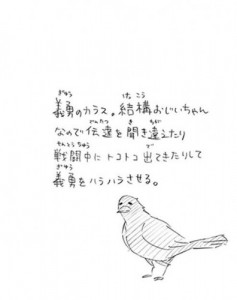 ぎゆう けっこう
義勇のカラス。結構おじいちゃん
でんたつ き ちが
なので伝達を聞き違えたり
せんとうちゅう で
戦闘中にトコトコ出てきたりして
ぎゆう
義勇をハラハラさせる。